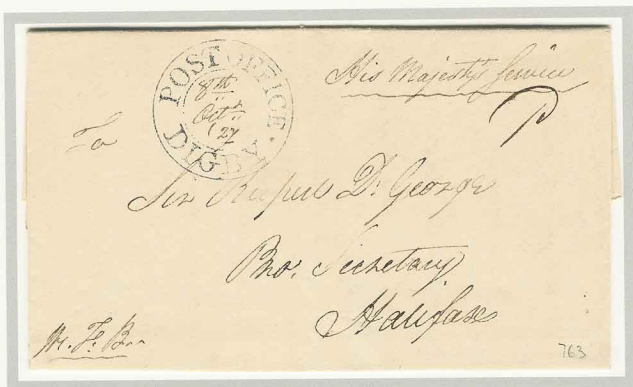 POST OFFICE.
8th
Octr
27
DIGBY
His Majesty's Service
To
Sir Rupert D. George
Pro. Secretary
Halifax
763